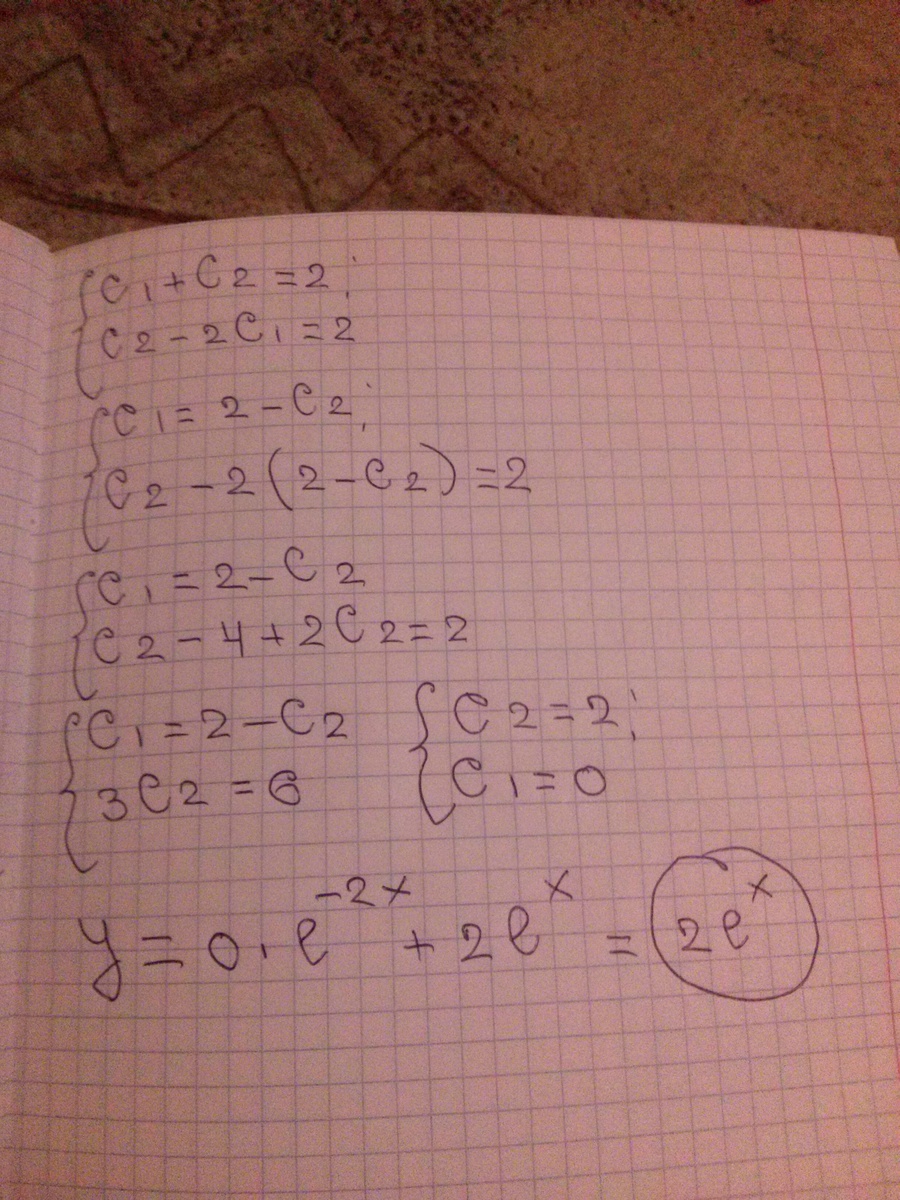 C₁ + C₂ = 2;
C₂ - 2C₁ = 2
C₁ = 2 - C₂;
C₂ - 2(2 - C₂) = 2
C₁ = 2 - C₂
C₂ - 4 + 2C₂ = 2
C₁ = 2 - C₂
3C₂ = 6
C₂ = 2;
C₁ = 0
y = 0 · e^{-2x} + 2e^x = 2e^x